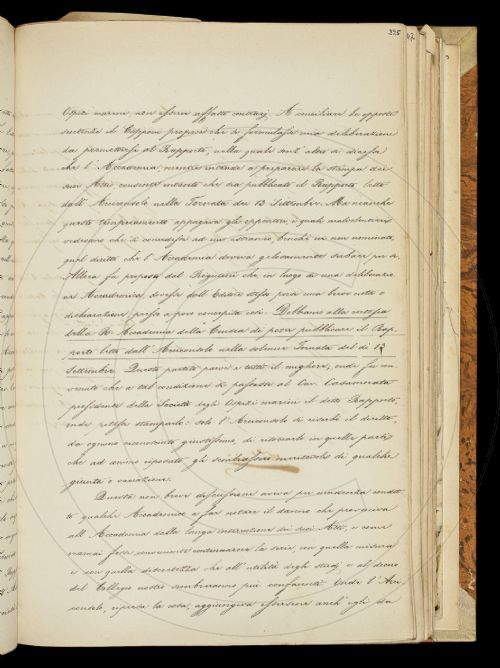 325 47
Ospizi marini, non essersi affatto contrarj. A conciliare le opposte
sentenze il Capponi propose che si formulasse una deliberazione
da premettersi al Rapporto, nella quale senz'altro si dicesse
che l'Accademia mentre intende a preparare la stampa dei
suoi Atti, consente intanto che sia pubblicato il Rapporto letto
dall'Arciconsolo nella Tornata dei 13 Settembre. Ma neanche
questo temperamento appagava gli oppositori, i quali malvolentieri
vedevano che si concedesse ad un estraneo, benchè in non nominato,
quel diritto che l'Accademia doveva gelosamente serbare per se.
Allora fu proposto dal Rigutini che, in luogo di una deliberazio-
ne Accademica, dovesse dall'Editor stesso porsi una breve nota o
dichiarazione, presso a poco concepita così: Dobbiamo alla cortesia
della R. Accademia della Crusca di poter pubblicare il Rap-
porto letto dall'Arciconsolo nella solenne Tornata del dì 13
Settembre. Questo partito parve a tutti il migliore, onde fu con-
venuto che a tal condizione si passasse al Cav. Casamorata
presidente della Società degli Ospizi marini il detto Rapporto,
onde potesse stamparlo: solo l'Arciconsolo si riserbò il diritto,
da ognuno riconosciuto giustissimo, di ritoccarlo in quelle parti
che ad animo riposato gli sembrassero meritevoli di qualche
giunta o variazione.
Questa non breve discussione aveva per conseguenza condot-
to qualche Accademico a far notare il danno che proveniva
all'Accademia dalla lunga interruzione dei suoi Atti, e come
oramai fosse conveniente continuarne la serie con quella misura
e con quella discretezza che all'utilità degli studj e al decoro
del Collegio nostro sembrassero più confacenti. Onde l'Arci-
consolo, ripresa la cosa, aggiungeva essersene anch'egli da